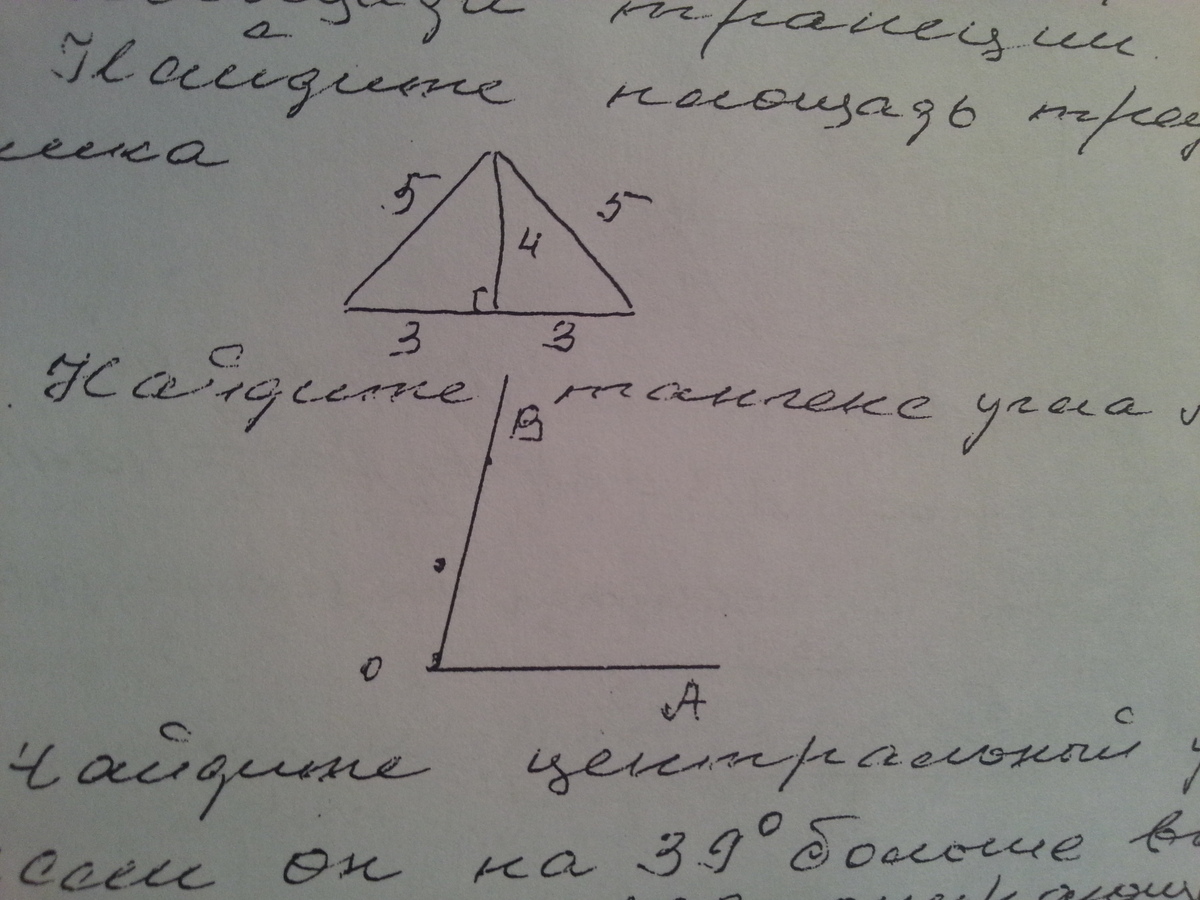 трапеции.
Найдите площадь треу
ника
5 5
4
3 3
Найдите тангенс угла
В
О
А
Найдите центральный у
если он на 39° больше